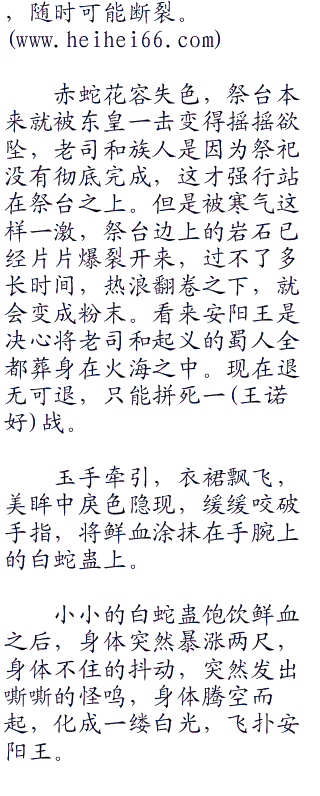 ，随时可能断裂。
(www.heihei66.com)
赤蛇花容失色，祭台本
来就被东皇一击变得摇摇欲
坠，老司和族人是因为祭祀
没有彻底完成，这才强行站
在祭台之上。但是被寒气这
样一激，祭台边上的岩石已
经片片爆裂开来，过不了多
长时间，热浪翻卷之下，就
会变成粉末。看来安阳王是
决心将老司和起义的蜀人全
都葬身在火海之中。现在退
无可退，只能拼死一(王诺
好)战。
玉手牵引，衣裙飘飞，
美眸中戾色隐现，缓缓咬破
手指，将鲜血涂抹在手腕上
的白蛇蛊上。
小小的白蛇蛊饱饮鲜血
之后，身体突然暴涨两尺，
身体不住的抖动，突然发出
嘶嘶的怪鸣，身体腾空而
起，化成一缕白光，飞扑安
阳王。